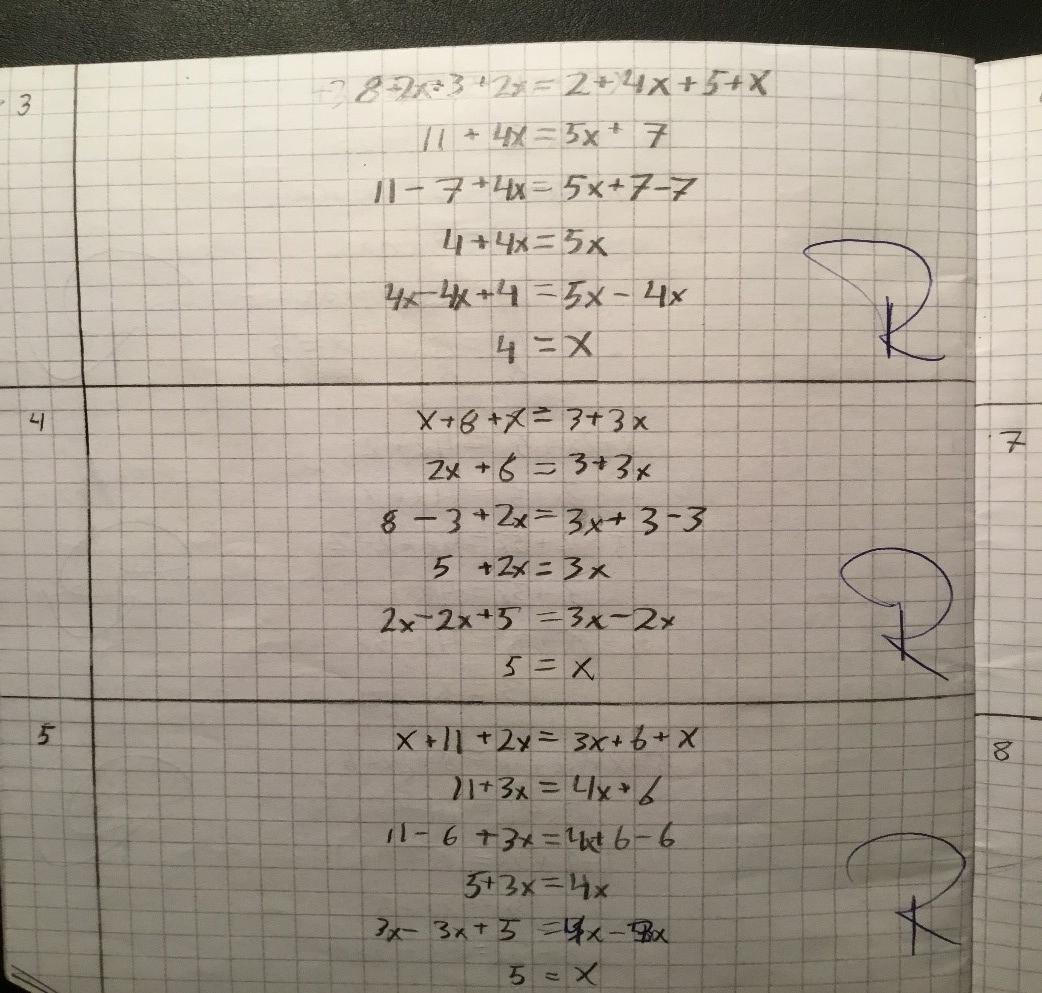 3
8+2x+3+2x=2+4x+5+x
11 + 4x=5x+ 7
11- 7 +4x= 5x+7-7
4+4x=5x
4x-4x+4 =5x- 4x
4 = x
R
4
x+8+x= 3+3x
2x +6 = 3+3x
8 -3 +2x=3x+ 3-3
5 +2x= 3x
2x-2x+5 =3x-2x
5 = x
R
5
x+11 +2x= 3x+6+ x
11+3x= 4x+6
11- 6 +3x=4x+6-6
5+3x=4x
3x- 3x+5 =4x-3x
5 = x
R
7
8